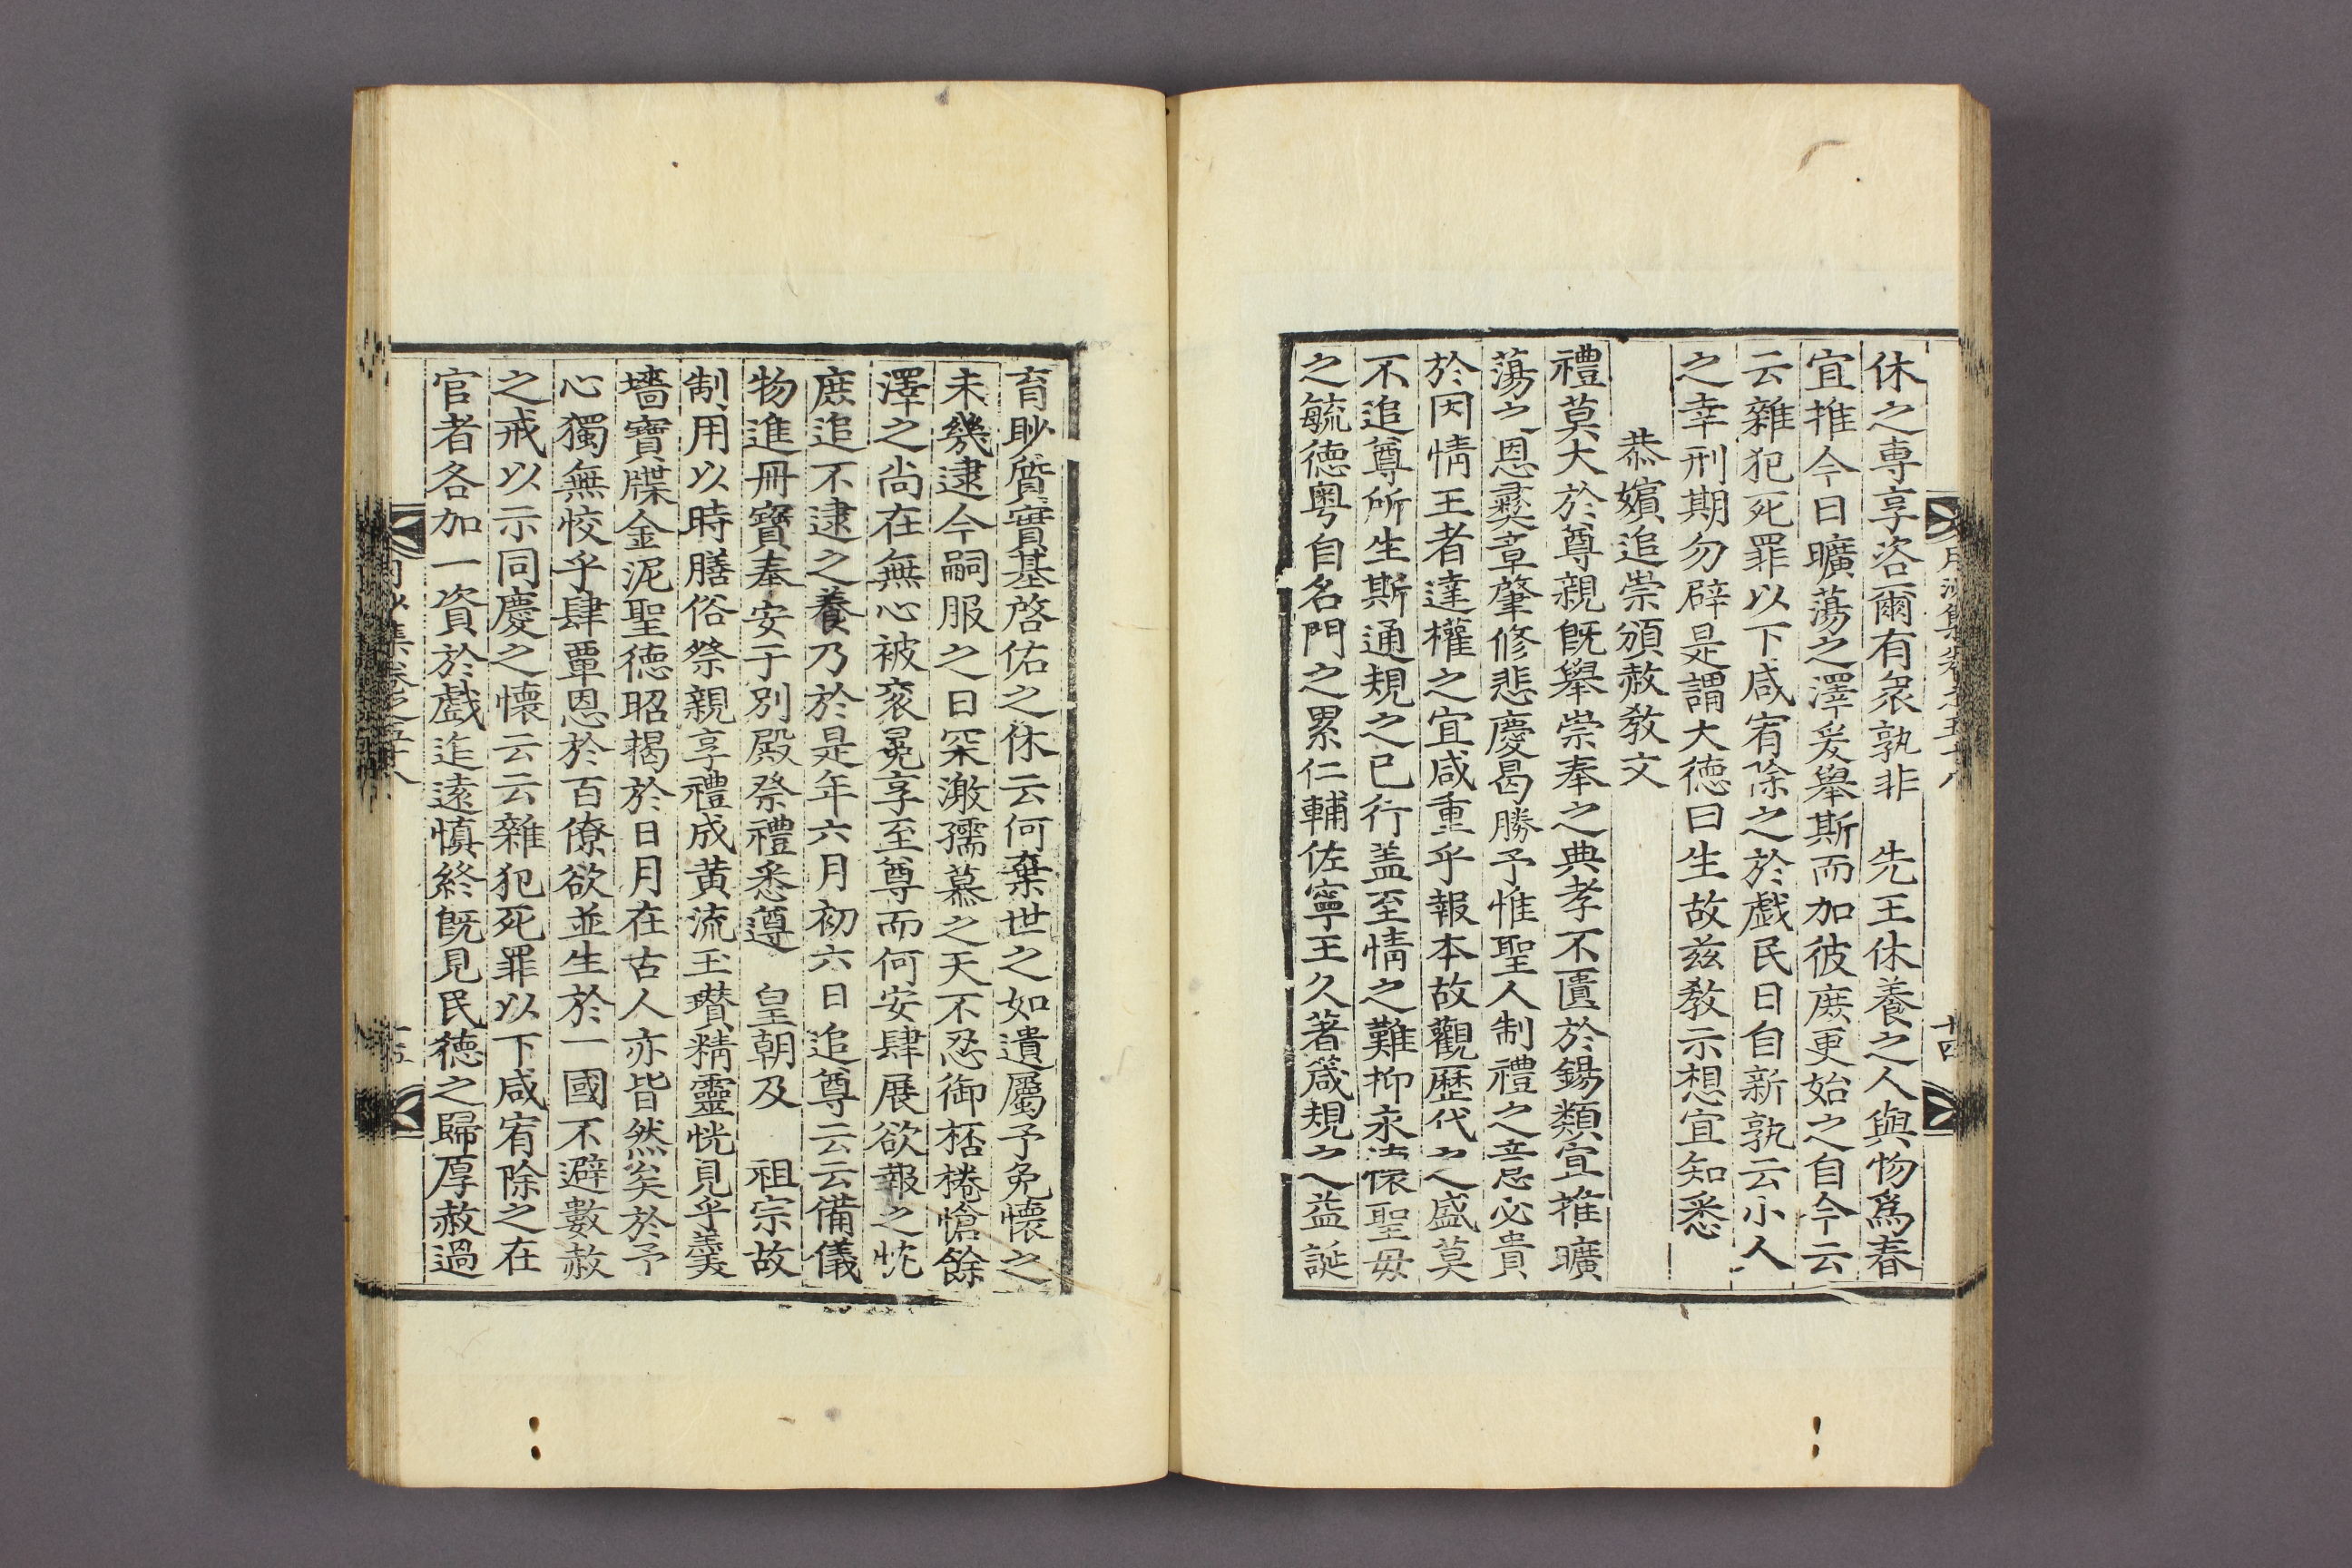 休之專享咨爾有衆孰非　先王休養之人與物爲春
宜推今日曠蕩之澤爰擧斯而加彼庶更始之自今云
云雜犯死罪以下咸宥除之於戲民日自新孰云小人
之幸刑期勿辟是謂大德曰生故玆敎示想宜知悉
恭嬪追崇頒赦敎文
禮莫大於尊親旣擧崇奉之典孝不匱於錫類宜推曠
蕩之恩彛章肇修悲慶曷勝予惟聖人制禮之意忌必貴
於因情王者達權之宜咸重乎報本故觀歷代之盛莫
不追尊所生斯通規之已行盖至情之難抑永懷聖母
之毓德粤自名門之累仁輔佐寧王久著箴規之益誕
月沙集卷之五十八
十四
育眇質實基啓佑之休云何棄世之如遺屬予免懷之
未幾逮今嗣服之日深激孺慕之天不忍御桮棬愴餘
澤之尙在無心被衮冕享至尊而何安肆展欲報之忱
庶追不逮之養乃於是年六月初六日追尊云云備儀
物進冊寶奉安于別殿祭禮悉遵　皇朝及　祖宗故
制用以時膳俗祭親享禮成黃流玉瓚精靈恍見乎羹
墻寶牒金泥聖德昭揭於日月在古人亦皆然矣於予
心獨無恔乎肆覃恩於百僚欲並生於一國不避數赦
之戒以示同慶之懷云云雜犯死罪以下咸宥除之在
官者各加一資於戲追遠愼終旣見民德之歸厚赦過
月沙集卷之五十八
十五